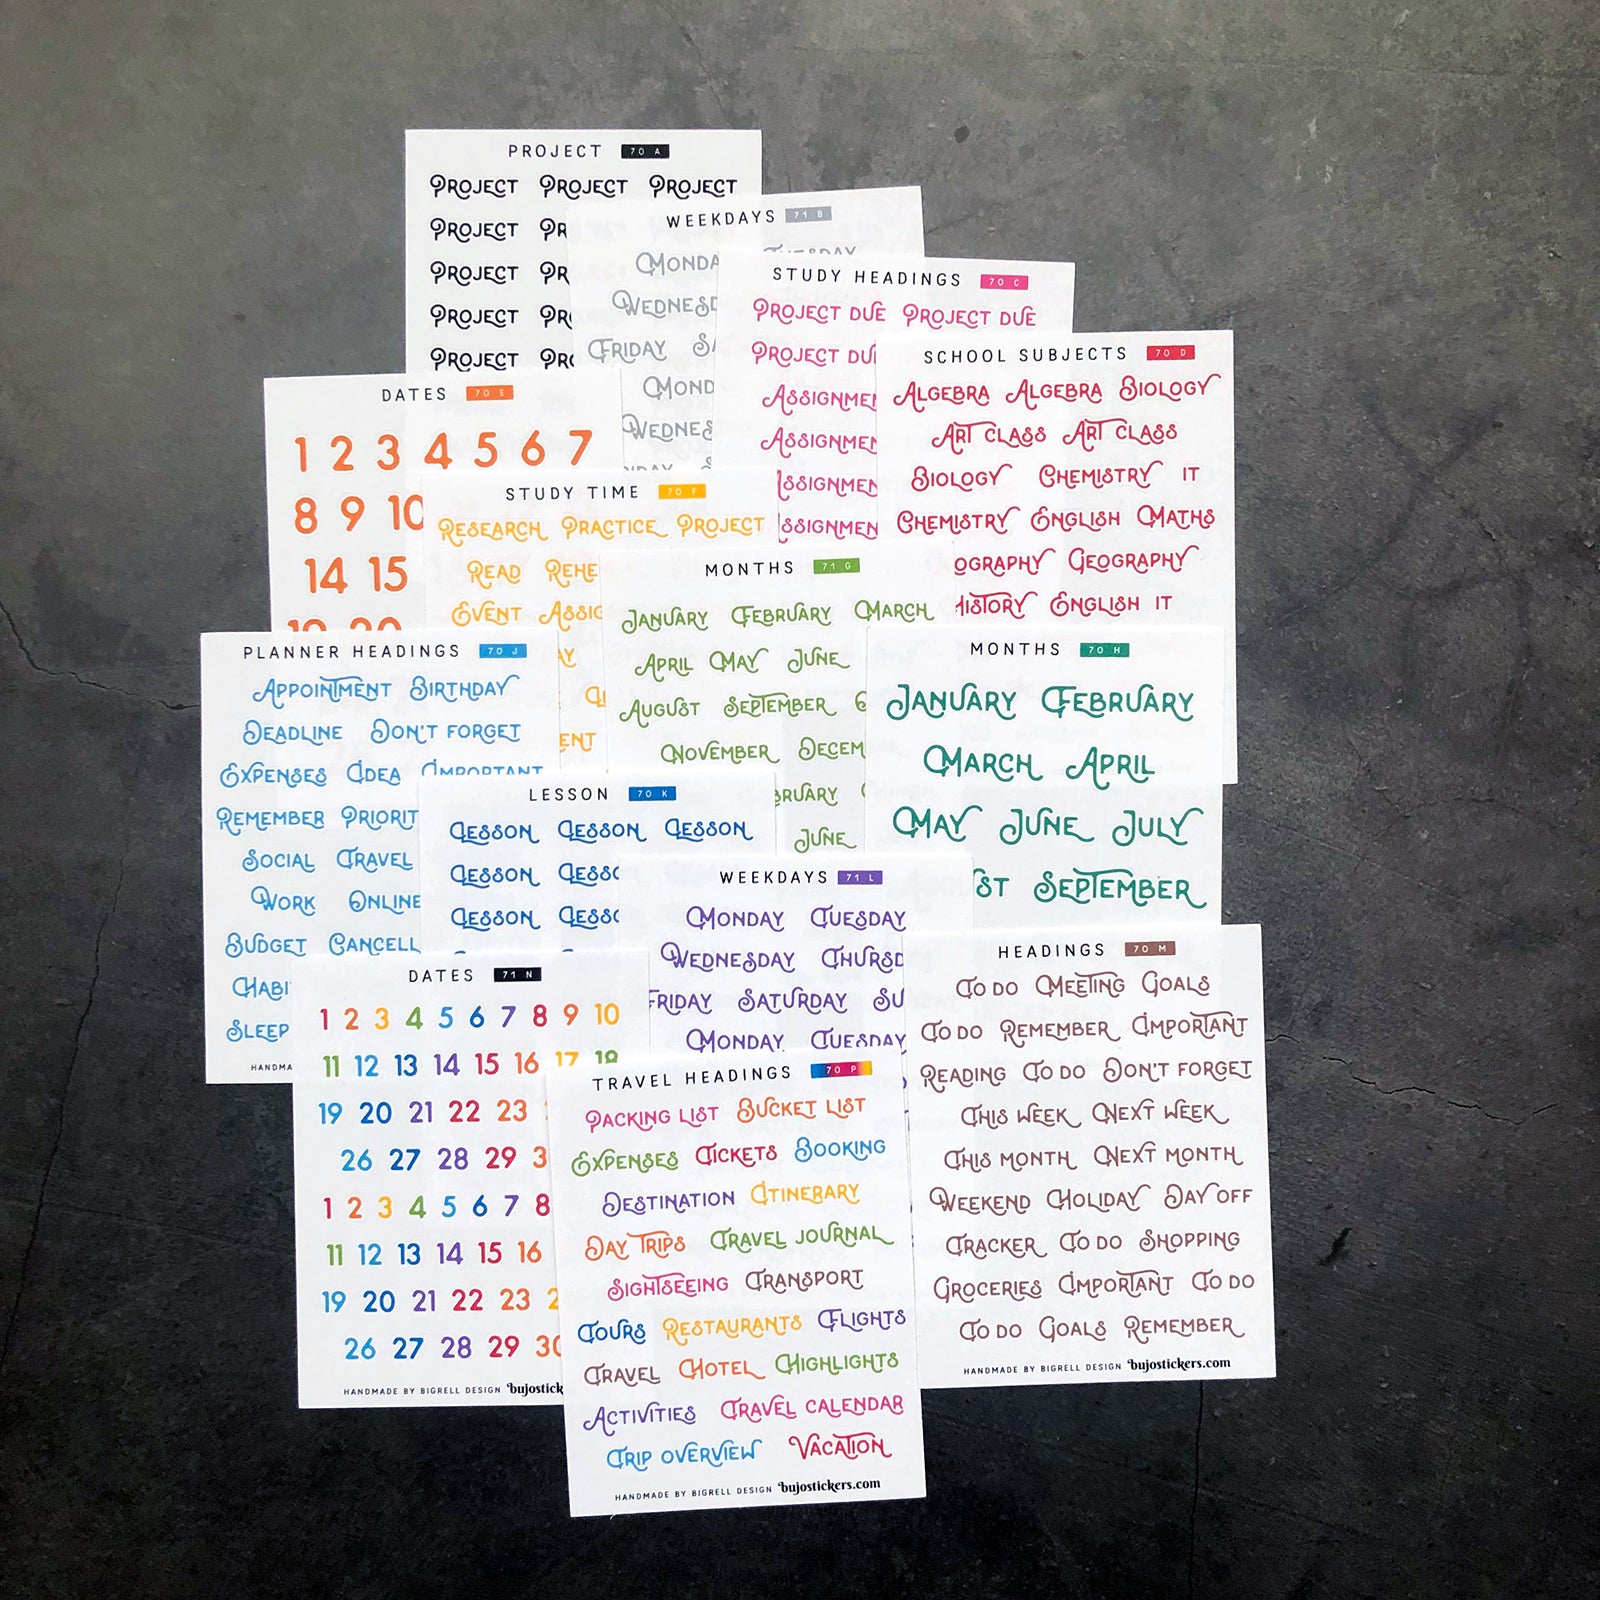 PROJECT 70 A
PROJECT PROJECT PROJECT
PROJECT
PROJECT
PROJECT
PROJECT
WEEKDAYS 71 B
TUESDAY
FRIDAY
STUDY HEADINGS 70 C
PROJECT DUE PROJECT DUE
PROJECT
SCHOOL SUBJECTS 70 D
ALGEBRA ALGEBRA BIOLOGY
ART CLASS ART CLASS
BIOLOGY CHEMISTRY IT
CHEMISTRY ENGLISH MATHS
GEOGRAPHY
HISTORY ENGLISH IT
DATES 70 E
1 2 3 4 5 6 7
8 9 10
14 15
19 20
STUDY TIME 70 F
RESEARCH PRACTICE PROJECT
READ
EVENT
MONTHS 71 G
JANUARY FEBRUARY MARCH
APRIL MAY JUNE
AUGUST SEPTEMBER
NOVEMBER
JUNE
MONTHS 70 H
JANUARY FEBRUARY
MARCH APRIL
MAY JUNE JULY
SEPTEMBER
PLANNER HEADINGS 70 J
APPOINTMENT BIRTHDAY
DEADLINE DON'T FORGET
EXPENSES IDEA IMPORTANT
REMEMBER
SOCIAL TRAVEL
WORK ONLINE
BUDGET
SLEEP
LESSON 70 K
LESSON LESSON LESSON
LESSON
LESSON
WEEKDAYS 71 L
MONDAY TUESDAY
WEDNESDAY
FRIDAY SATURDAY
MONDAY TUESDAY
HEADINGS 70 M
TO DO MEETING GOALS
TO DO REMEMBER IMPORTANT
READING TO DO DON'T FORGET
THIS WEEK NEXT WEEK
THIS MONTH NEXT MONTH
WEEKEND HOLIDAY DAY OFF
TRACKER TO DO SHOPPING
GROCERIES IMPORTANT TO DO
TO DO GOALS REMEMBER
HANDMADE BY BIGRELL DESIGN bujostickers.com
DATES 71 N
1 2 3 4 5 6 7 8 9 10
11 12 13 14 15 16 17 18
19 20 21 22 23
26 27 28 29
1 2 3 4 5 6 7 8
11 12 13 14 15 16
19 20 21 22 23
26 27 28 29 30
HANDMADE BY BIGRELL DESIGN
TRAVEL HEADINGS 70 P
PACKING LIST BUCKET LIST
EXPENSES TICKETS BOOKING
DESTINATION ITINERARY
DAY TRIPS TRAVEL JOURNAL
SIGHTSEEING TRANSPORT
TOURS RESTAURANTS FLIGHTS
TRAVEL HOTEL HIGHLIGHTS
ACTIVITIES TRAVEL CALENDAR
TRIP OVERVIEW VACATION
HANDMADE BY BIGRELL DESIGN bujostickers.com